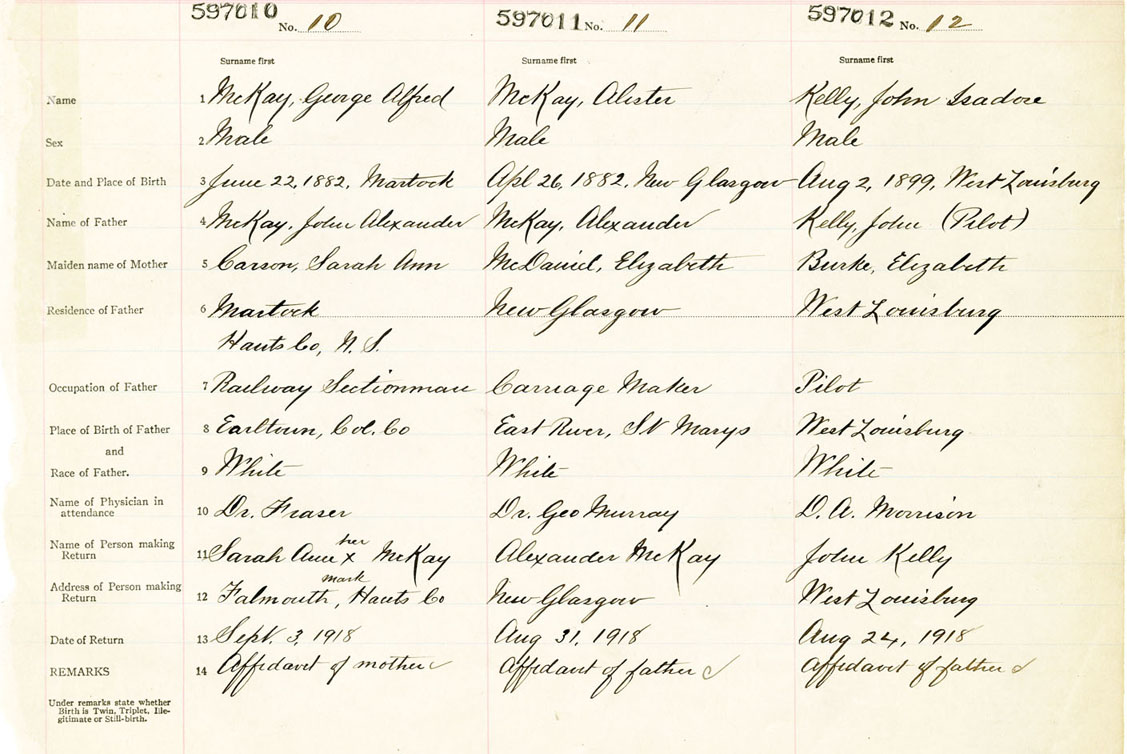 597010 No. 10 597011 No. 11 597012 No. 12
Surname first Surname first Surname first
Name 1 McKay, George Alfred McKay, Alister Kelly, John Isadore
Sex 2 Male Male Male
Date and Place of Birth 3 June 22, 1882, Martock Apl 26, 1882, New Glasgow Aug 2, 1899, West Louisburg
Name of Father 4 McKay, John Alexander McKay, Alexander Kelly, John (Pilot)
Maiden name of Mother 5 Carson, Sarah Ann McDaniel, Elizabeth Burke, Elizabeth
Residence of Father 6 Martock New Glasgow West Louisburg
Hants Co, N. S.
Occupation of Father 7 Railway Sectionman Carriage Maker Pilot
Place of Birth of Father 8 Earltown, Col. Co East River, St Marys West Louisburg
and
Race of Father. 9 White White White
Name of Physician in
attendance 10 Dr. Fraser Dr. Geo Murray D. A. Morrison
her
Name of Person making
Return 11 Sarah Ann x McKay Alexander McKay John Kelly
mark
Address of Person making
Return 12 Falmouth, Hants Co New Glasgow West Louisburg
Date of Return 13 Sept. 3, 1918 Aug 31, 1918 Aug 24, 1918
REMARKS 14 Affidavit of mother Affidavit of father Affidavit of father
Under remarks state whether
Birth is Twin, Triplet, Ille-
gitimate or Still-birth.